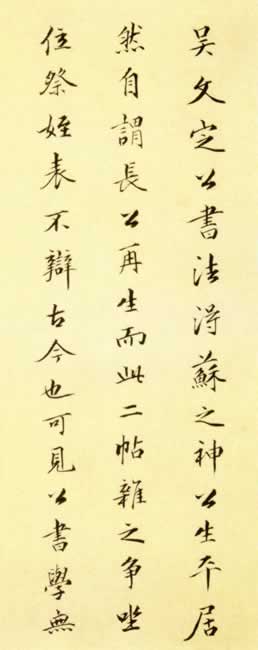 吴文定公書法得蘇之神公生平居
然自謂長公再生而此二帖雜之争坐
位祭姪表不辯古今也可見公書學無